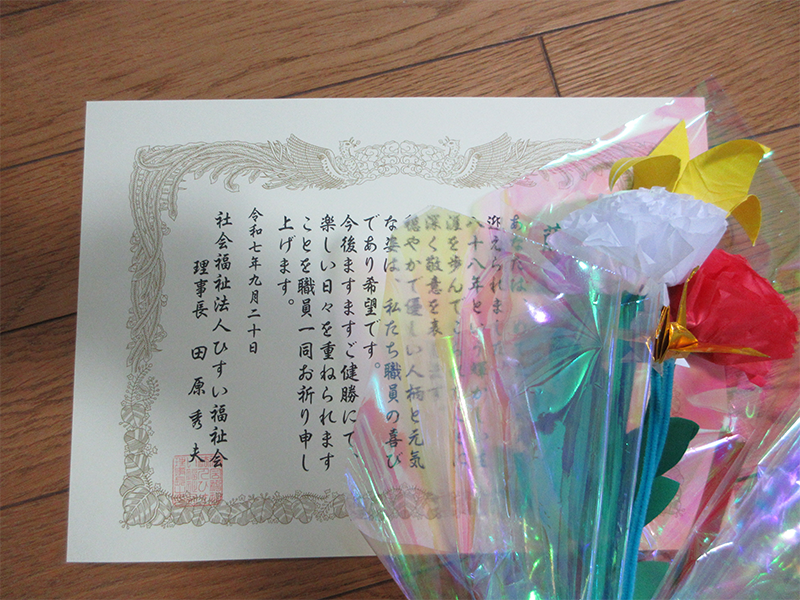 あなたは、
迎えられま
八十八年という輝かしい
を歩んで
深く敬意を表します
穏やかで優しい人柄と元気
な姿は、私たち職員の喜び
であり希望です。
今後ますますご健勝にて、
楽しい日々を重ねられます
ことを職員一同お祈り申し
上げます。
令和七年九月二十日
社会福祉法人ひすい福祉会
理事長 田原秀夫